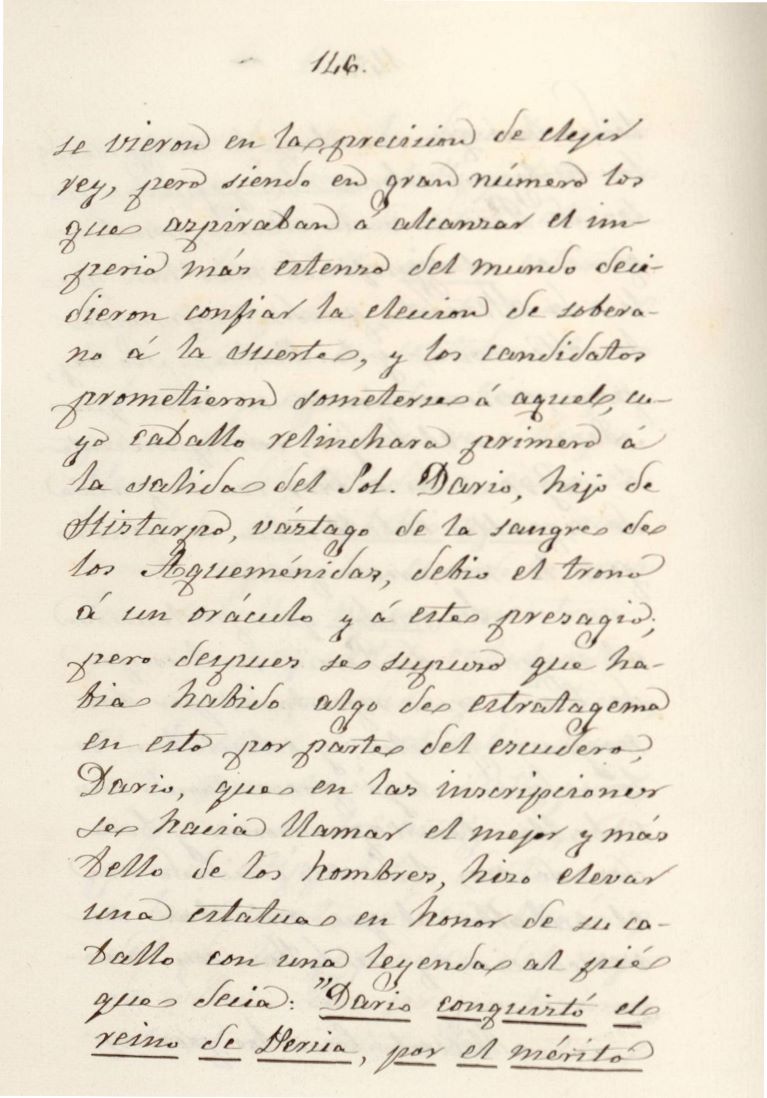 146.
se vieron en la precision de elejir
rey, pero siendo en gran número los
que aspiraban á alcanzar el im-
perio más estenso del mundo deci-
dieron confiar la eleccion de sobera-
no á la suerte, y los candidatos
prometieron someterse á aquel, cu-
yo caballo relinchara primero á
la salida del Sol. Dario, hijo de
Histarpo, vástago de la sangre de
los Aqueménidas, debio el trono
á un oráculo y á este presagio;
pero depues se supuso que ha-
bia habido algo de estratagema
en esto por parte del escudero,
Dario, que en las inscripciones
se hacia llamar el mejor y más
bello de los hombres, hizo elevar
una estatua en honor de su ca-
ballo con una leyenda al pié
que decia: "Dario conquistó el
reino de Persia, por el mérito